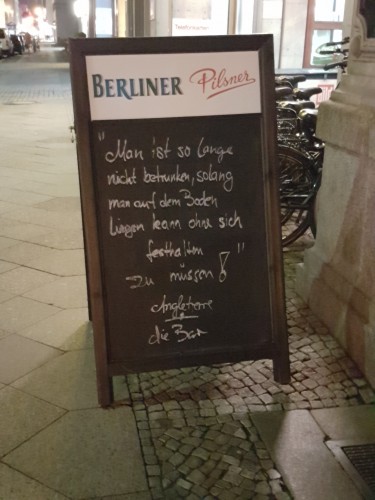 BERLINER Pilsner
"Man ist so lange
nicht betrunken, solang
man auf dem Boden
liegen kann ohne sich
festhalten "
zu müssen!
Angleterre
die Bar